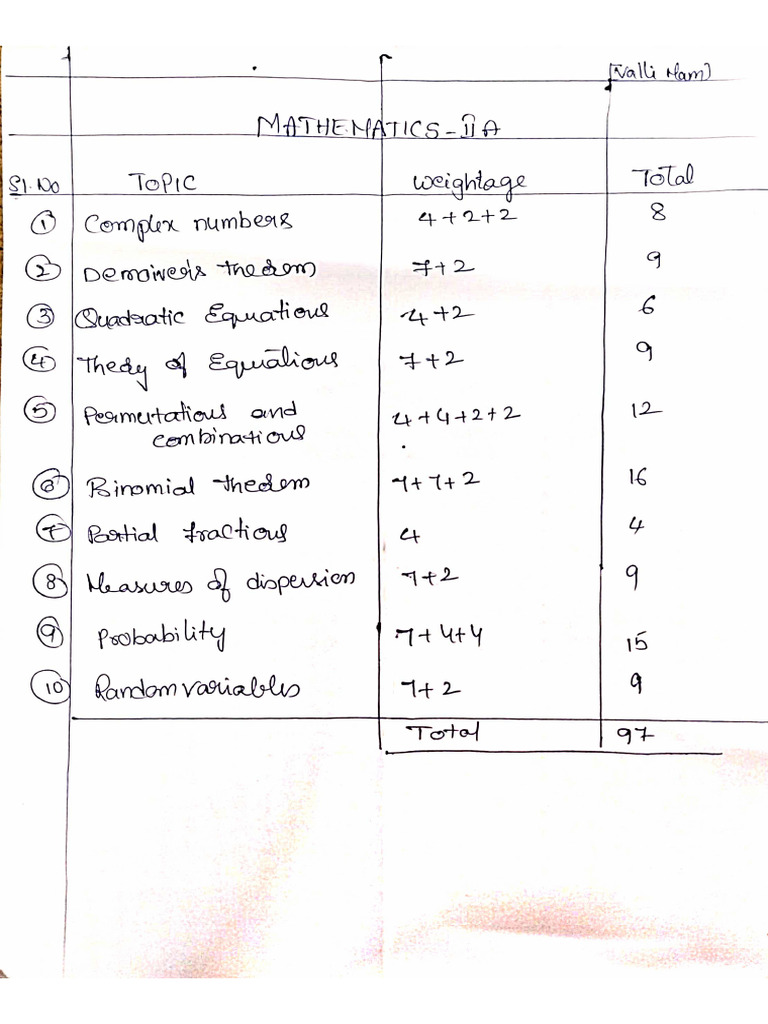 (Valli Mam)
MATHEMATICS-IIA
Sl.No TOPIC Weightage Total
1 Complex numbers 4+2+2 8
2 Demoiver's theorem 7+2 9
3 Quadratic Equations 4+2 6
4 Theory of Equations 7+2 9
5 Permutations and 4+4+2+2 12
combinations
6 Binomial theorem 7+7+2 16
7 Partial fractions 4 4
8 Measures of dispersion 7+2 9
9 Probability 7+4+4 15
10 Random variables 7+2 9
Total 97